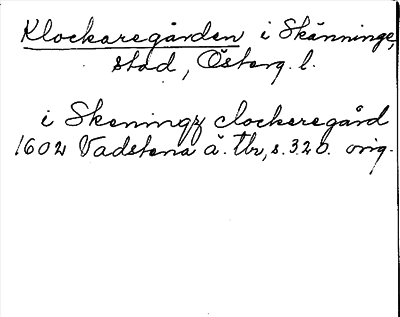 Klockaregården i Skänninge,
stad, Österg. l.
i Skeningz clockeregård
1602 Vadstena ä. tbr, s. 320. orig.